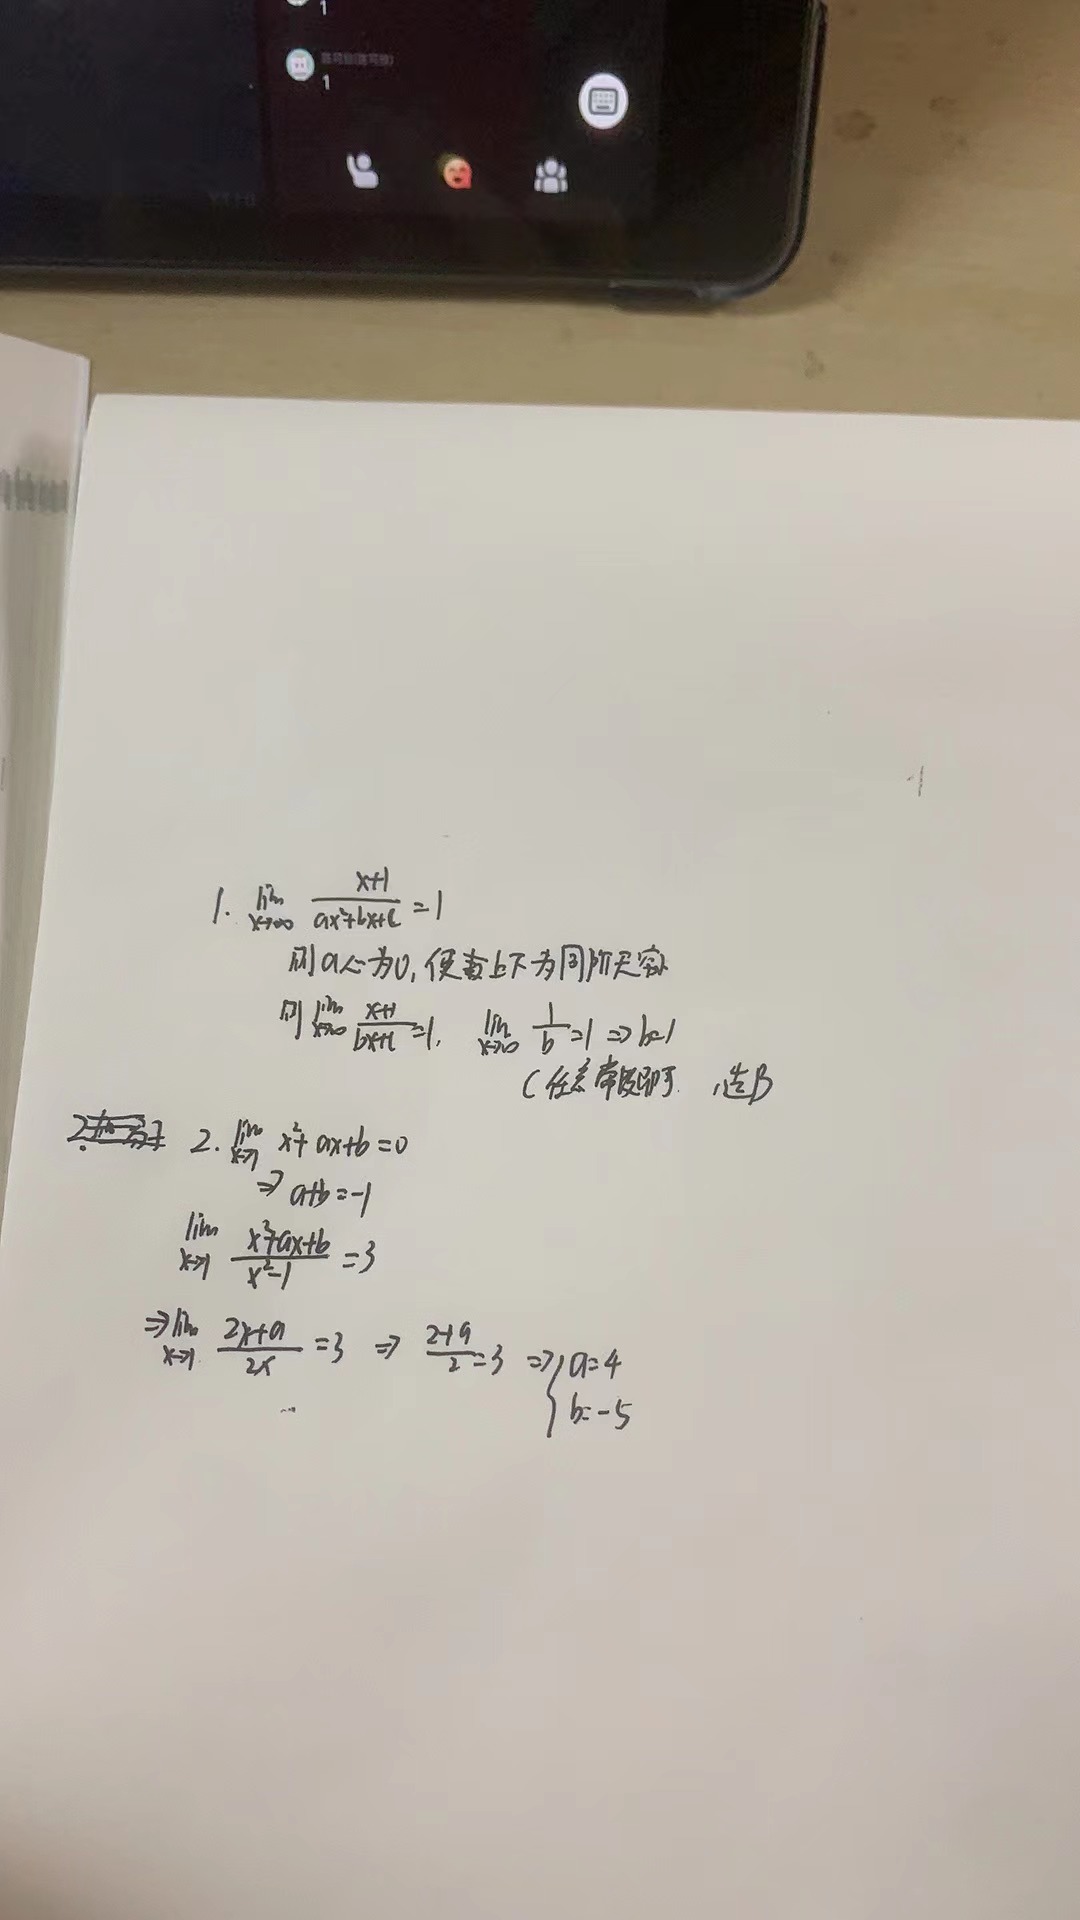 1
1
1. lim x→∞ (x+1)/(ax²+bx+c) = 1
则a必为0, 使上下为同阶无穷
则 lim x→∞ (x+1)/(bx+c) = 1, lim x→∞ 1/b = 1 ⇒ b=1
C任意常数即可, 选B
2. lim x→1 x²+ax+b=0
⇒ a+b=-1
lim x→1 (x²+ax+b)/(x²-1) = 3
⇒ lim x→1 (2x+a)/(2x) = 3 ⇒ (2+a)/2 = 3 ⇒ { a=4
b=-5